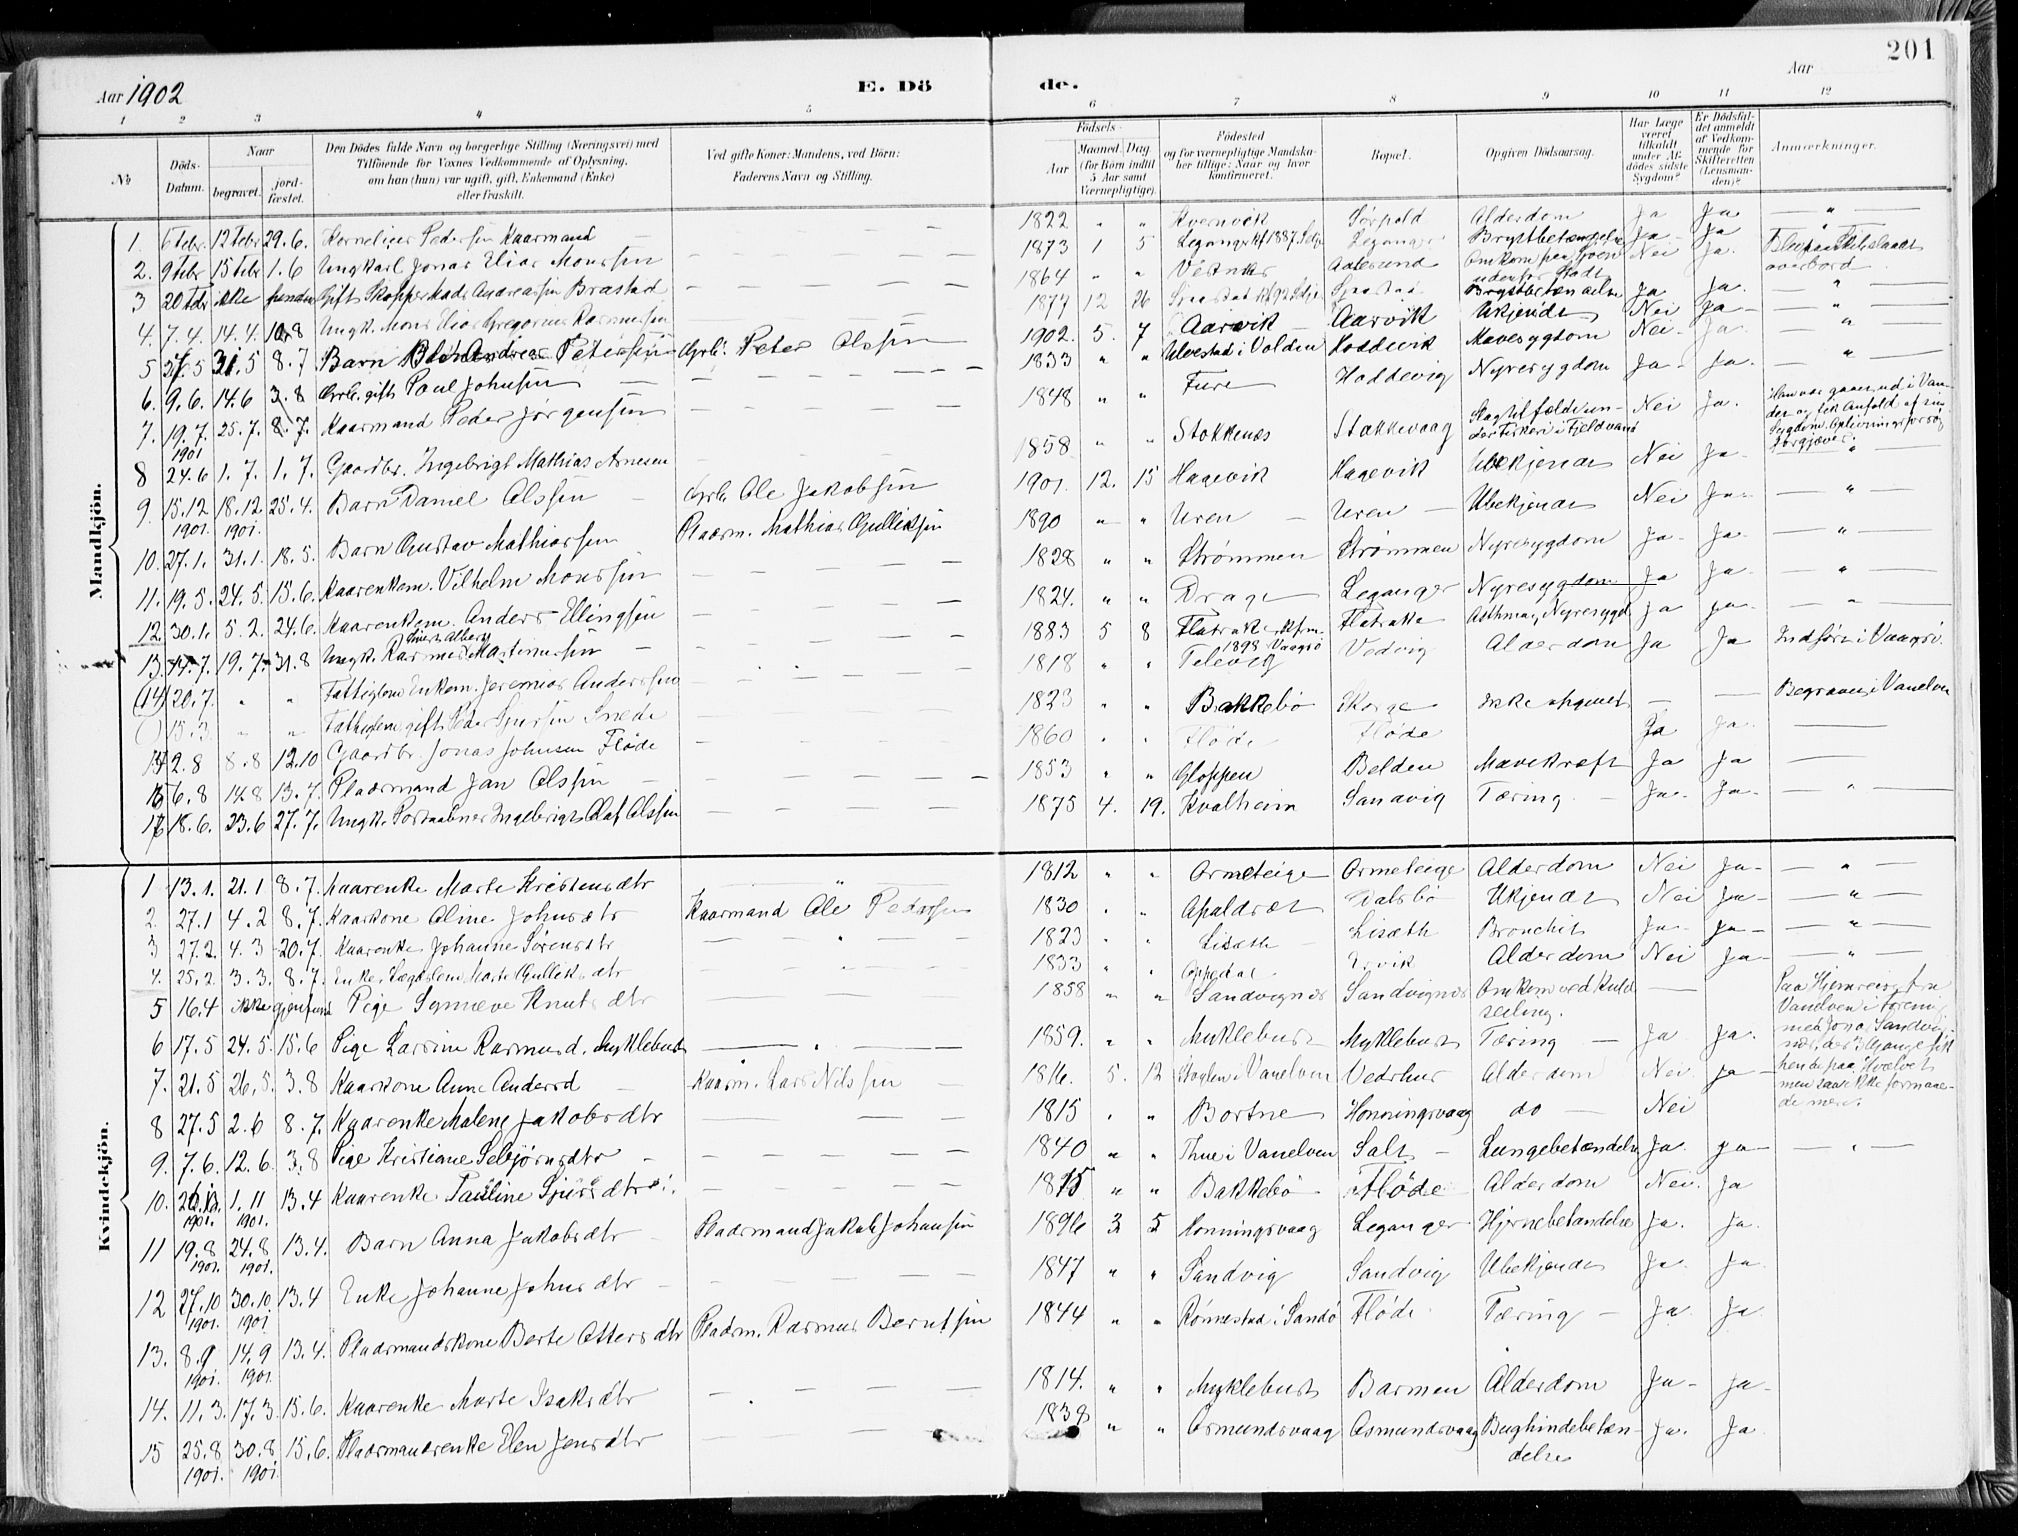 201
Aar 1902
E. Dö
de.
Aar
1 2 3 4 5 6 7 8 9 10 11 12
№
Döds-Datum.
Naar
begravet.
jordfæstet.
Den Dödes fulde Navn og borgerlige Stilling (Næringsvei) med
Tilföiende for Voxnes Vedkommende af Oplysning,
om han (hun) var ugift, gift, Enkemand (Enke)
eller fraskilt.
Ved gifte Koner: Mandens, ved Börn:
Faderens Navn og Stilling.
Födsels-
Aar
Maaned. Dag.
(for Börn indtil
5 Aar samt
Værnepligtige).
Födested
og for værnepligtige Mandskaber tillige: Naar og hvor
konfirmeret.
Bopæl.
Opgiven Dödsaarsag.
Har Læge
været
tilkaldt
under Afdödes sidste
Sygdom?
Er Dödsfaldet anmeldt
af Vedkommende for
Skifteretten
(Lensmanden)?
Anmærkninger.
Mandkjön.
1. 6 Febr. 12 Febr 29.6. Kornelius Pedersen Kaarmand 1822 " " Kvernvik Sørpold Alderdom Ja Ja "
2. 9 Febr 15 Febr 1.6 Ungkarl Jonas Elias Monssen 1873 1 5 Leganger Kf 1887 Selje Leganger Brystbetændelse Ja Ja
3 20 Febr ikke funden Gift Skipper Mads Andreassen Brastad 1864 " " Aalesund Omkom paa Søen udenfor Stadt Nei Ja. overbord
4. 7.4. 14.4. Ungk. Mons Elias Gregorius Rasmussen 1877 12 26 Brystbetændelse Ja Ja. "
5 31.5 8.7 Barn Petersen Grbr. Peter Olssen 1902. 5. 7 Aarvik Aarvik Ukjendt Nei Ja "
6. 9.6. 14.6 3.8 Grbr. gift Poul Johnsen 1833 " " Ulvestad i Volden Hoddevik Mavesygdom Nei Ja. "
7. 19.7. 25.7. 8.7. Kaarmand Peder Jørgensen 1848 " " Fure Hoddevig Nyresygdom Ja Ja. "
1901
8 24.6 1.7. 1.7. Gaardbr. Ingebrigt Mathias Arnesen 1858 " " Stokkenes Stokkevaag Slagtilfælde under Fiskeri i Fjeldvand Nei Ja. Han var gaaet ud i Vandet og fik Anfald af sin Sygdom. Oplivningsforsøg forgjæves.
9. 15.12 18.12. 25.4. Barn Daniel Olssen Grbr. Ole Jakobsen 1901. 12. 15 Hagevik Hagevik Ubekjendt Nei Ja "
1901. 1901.
10. 27.1. 31.1. 18.5. Barn Gustav Mathiassen Pladsm. Mathias Gulliksen 1890 " " Uren Uren Ubekjendt Nei Ja "
11. 19.5. 24.5. 15.6. Kaarenkem. Vilhelm Monssen 1828 " " Strømmen Strømmen Nyresygdom Ja Ja "
12. 30.1. 5.2. 24.6. Kaarenkem. Anders Ellingsen 1824. " " Drage Leganger Nyresygdom Ja Ja. "
13. 14.7. 19.7. 31.8 Ungk. Rasmus Martinussen 1883 5 8 Flatrake kfm. 1898 Vaagsö Flatrake Asthma, Nyresygd Ja ja "
(14) 20.7. " " Fattiglem Enkem. Jeremias Anderssen 1818 " " Televig Vedvig Alderdom Ja Ja Indført i Vaagsö.
15.3. " " Fattiglem gift Peder Sjursen 1823 " " Bakkebö Skorge ikke opgivet Begraven i Vanelven
2.8 8.8 12.10 Gaardbr. Jonas Johnsen Fløde 1860 " " Fløde Fløde Ja Ja
6.8 14.8 13.7. Pladsmand Jan Olssen 1853 " " Gloppen Belden Mavekræft Ja Ja
18.6. 23.6 27.7. Ungk. Ingebrigt Olaf Olssen 1875 4. 19. Kvalheim Sandvig Tæring Ja Ja. "
Kvindekjön.
1 13.1. 21.1 8.7. Kaarenke Marte Kristensdtr " 1812 " " Ormeteige Ormeteige Alderdom Nei Ja "
2. 27.1 4.2 8.7. Kaarkone Oline Johnsdtr Kaarmand Ole Pederssen 1830 " " Apaldset Dalsbö Ukjendt Nei Ja "
3 27.2. 4.3 20.7. Kaarenke Johanne Sørensdtr " 1823 " " Lisæth Lisæth Bronchit Ja Ja "
4. 25.2 3.3. 8.7. Enke, Lægdslem Marte Gulliksdtr " 1833 " " Oppedal Ervik Alderdom Nei Ja "
5 16.4 ikke gjenfund Pige Synneve Knutsdtr 1858 " " Sandvignes Sandvignes Omkom ved Kuldseiling. Paa Hjemreise fra Vanelven i Forening med Jonas Sandvignes, der 3 Gange fik hende paa Hvælvet men saa ikke formaaede mere.
6 17.5 24.5. 15.6 Pige Larsine Rasmusd. Myklebust " 1859. " " Myklebust Myklebust Tæring Ja Ja.
7. 21.5 26.5. 3.8 Kaarkone Anne Andersd Kaarm. Lars Nilssen 1816. 5. 12 Skoglen i Vanelven Vedshus Alderdom Nei Ja
8 27.5 2.6 8.7. Kaarenke Malene Jakobsdtr 1815 " " Bortne Honningsvaag do Nei
9. 7.6. 12.6. 3.8 Pige Kristiane Sebjørnsdtr 1840 " " Thue i Vanelven Salt Lungebetændelse Ja ja "
10. 1.11 13.4 Kaarenke Pauline Sjursdtr 1815 " " Bakkebö Fløde Alderdom Nei. Ja
1901. 1901.
11 19.8 24.8 13.4. Barn Anna Jakobsdtr Pladsmand Jakob Johansen 1896 3 5 Honningsvaag Leganger Hjernebetændelse Ja. Ja.
1901. 1901.
12 27.10 30.10. 13.4 Enke Johanne Johnsdtr 1847 " " Sandvig Sandvig Ubekjendt Ja. Ja.
1901. 1901
13. 8.9 14.9 13.4. Pladsmandskone Berte Ottersdtr Pladsm. Rasmus Berntsen 1844 " " Rønnestad i Sandö Fløde Tæring Ja Ja.
1901. 1901.
14. 11.3. 17.3. 15.6. Kaarenke Marte Isaksdtr 1814. " " Myklebust Barmen Alderdom Ja ja
15 25.8 30.8 15.6. Pladsmandsenke Elen Jensdtr 1838 " " Osmundsvaag Osmundsvaag Bughindebetændelse Ja. Ja
1901. 1901.